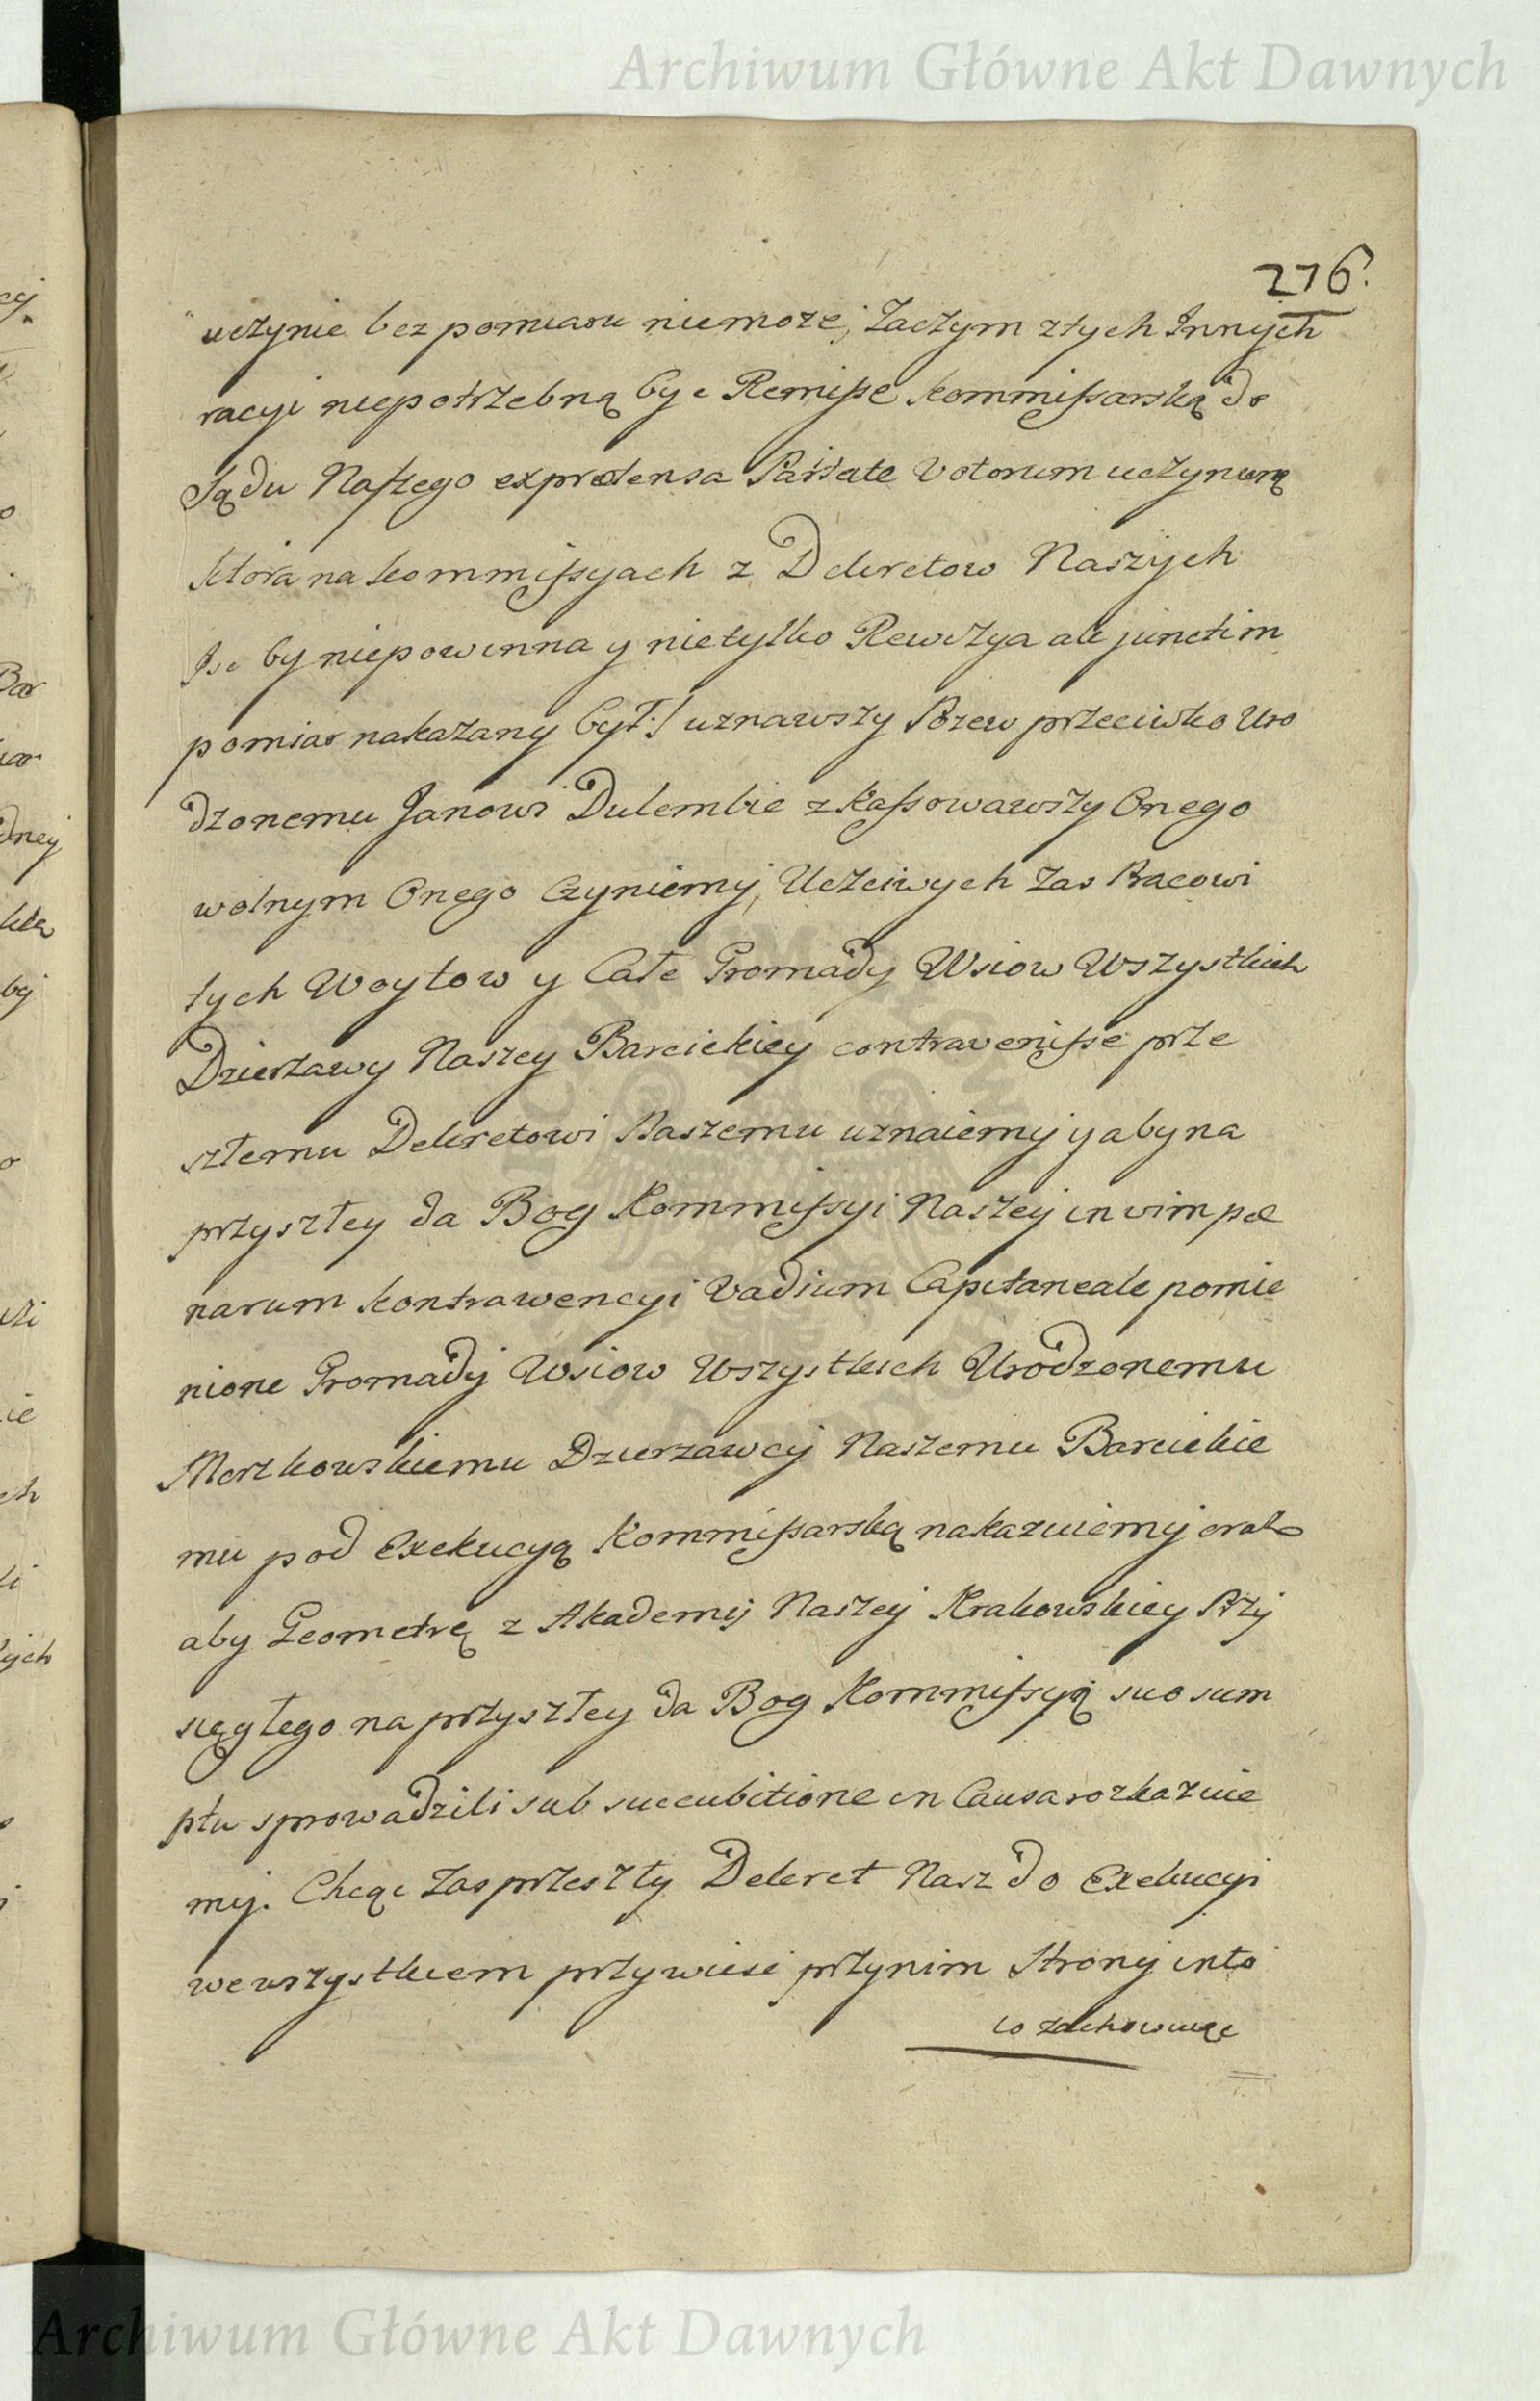 Archiwum Główne Akt Dawnych
276.
uczynic bez pomiaru niemoze, Zaczym ztych Innych
racyi niepotrzebną byc Remisse kommissarską do
Sądu Naszego exprætensa Paritate Votorum uczynioną
ktora na kommissyach z Dekretow Naszych
Isc by niepowinna y nietylko Rewizya ale junctim
pomiar nakazany był :/ uznawszy Pozew przeciwko Uro
dzonemu Janowi Dulembie zkassowawszy Onego
wolnym Onego Czyniemy, Uczciwych zas Pracowi
tych Woytow y Całe Gromady Wsiow Wszystkich
Dzierzawy Naszey Barcickiey contravenisse prze
szłemu Dekretowi Naszemu uznaiemy y aby na
przyszłey da Bog Kommissyi Naszey in vim pæ
narum kontrawencyi Vadium Capitaneale pomie
nione Gromady Wsiow Wszystkich Urodzonemu
Morzkowskiemu Dzierzawcy Naszemu Barcickie
mu pod Exekucyą Kommissarską nakazuiemy oraz
aby Geometrę z Akademij Naszey Krakowskiey Przy
sięgłego na przyszłey da Bog Kommissyą suo sum
ptu sprowadzili sub succubitione in Causa rozkazuie
my. Chcąc zas przeszły Dekret Nasz do Exekucyi
wewszystkiem przywiesc przynim Strony into
to zachowuiąc
Archiwum Główne Akt Dawnych